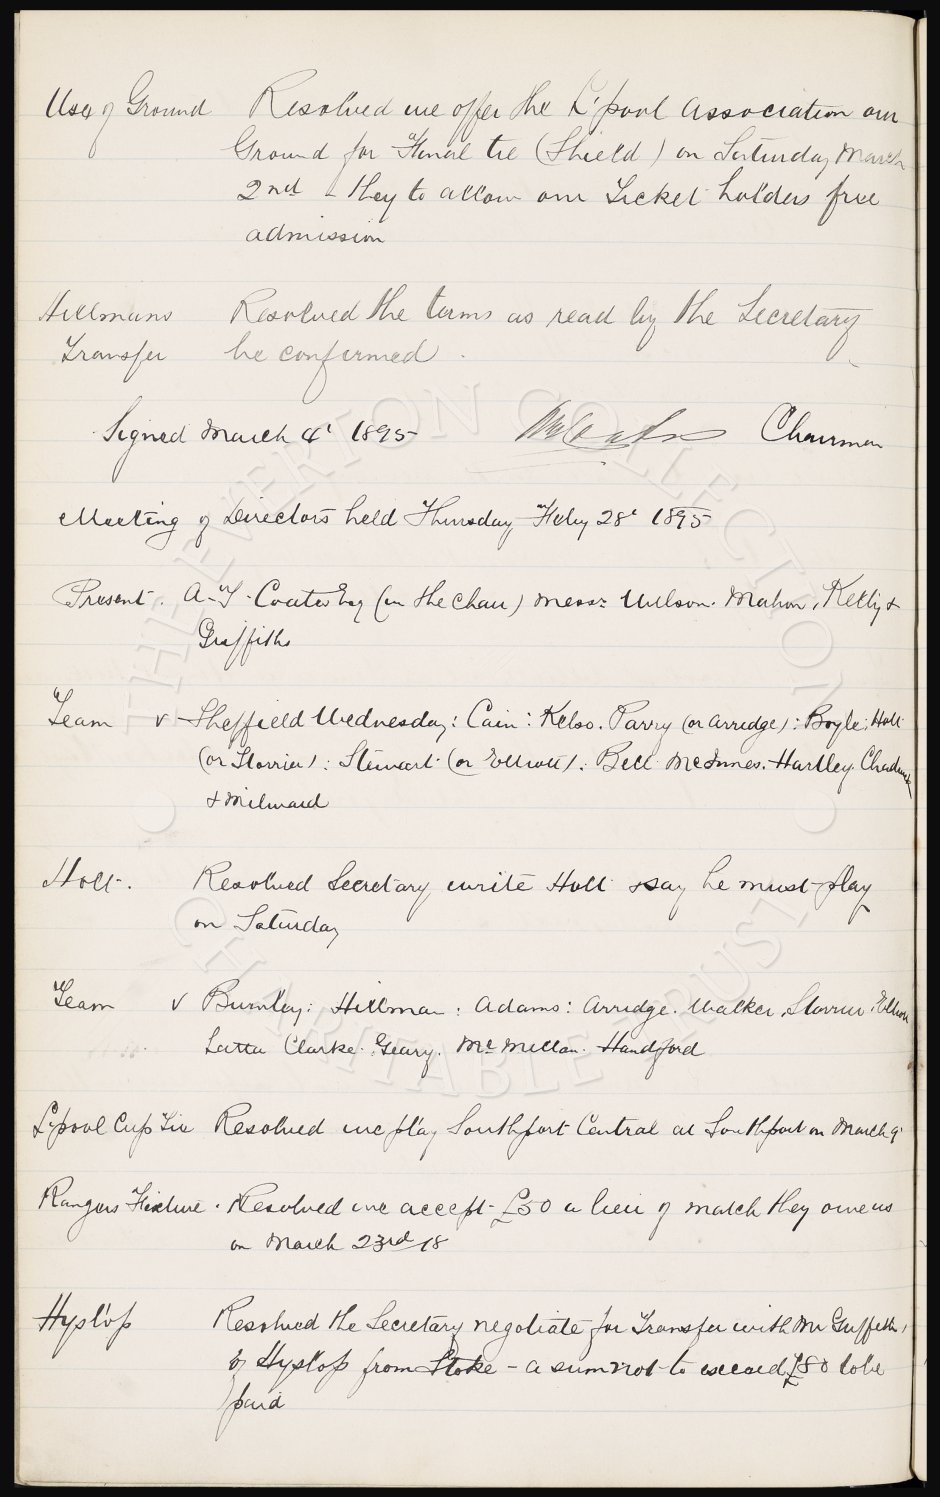 Use of Ground Resolved we offer the L'pool Association our
Ground for Final tie (Shield) on Saturday March
2nd - they to allow our Ticket holders free
admission
Hillmans Resolved the terms as read by the Secretary
Transfer be confirmed.
Signed March 4' 1895 Chairman
Meeting of Directors held Thursday Feby 28' 1895
Present. A.T. Coates Esq (in the Chair) Messrs Wilson. Mahon, Kelly &
Griffiths
Team v Sheffield Wednesday: Cain: Kelso. Parry (or Arridge): Boyle: Holt
(or Storrier): Stewart (or Elliott): Bell McInnes. Hartley. Chadwick
& Milward
Holt. Resolved Secretary write Holt & say he must play
on Saturday
Team v Burnley: Hillman: Adams: Arridge. Walker. Storrier. Elliott
Latta Clarke. Geary. McMillan. Handford
L'pool Cup Tie Resolved we play Southport Central at Southport on March 9'
Rangers Fixture. Resolved we accept £50 in lieu of match they owe us
on March 23rd
Hyslop Resolved the Secretary negotiate for Transfer with Mr Griffiths,
of Hyslop from Stoke - a sum not to exceed £80 to be
paid
THE EVERTON COLLECTION
CHARITABLE TRUST